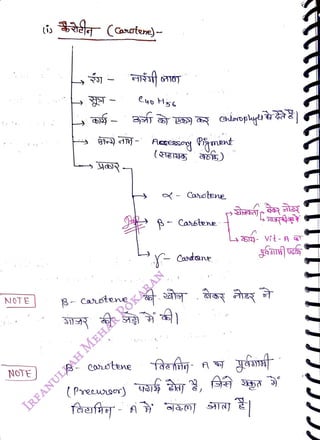 (i) कैरोटीन (Carotene) -
→ रंग - नारंगी लाल
→ सूत्र - C40 H56
→ कार्य - ऊर्जा को एकत्र कर Chlorophyll को देते है|
→ अन्य नाम - Accessory Pigment
(सहायक वर्णक)
→ प्रकार
→ α - Carotene
→ β - Carotene → खोजकर्ता
→ कार्य - Vit-A का
पूर्वगामी पदार्थ
→ γ - Carotene
NOTE β- carotene की खोज वेकर नोडर ने
गाजर की जड़ो में की|
NOTE β- carotene विटामिन- A का पूर्वगामी
(Precursor) पदार्थ होता है, जिसे यकृत में
विटामिन - A में बदला जाता है|
IRFANULLAH MEHAR POKARAN